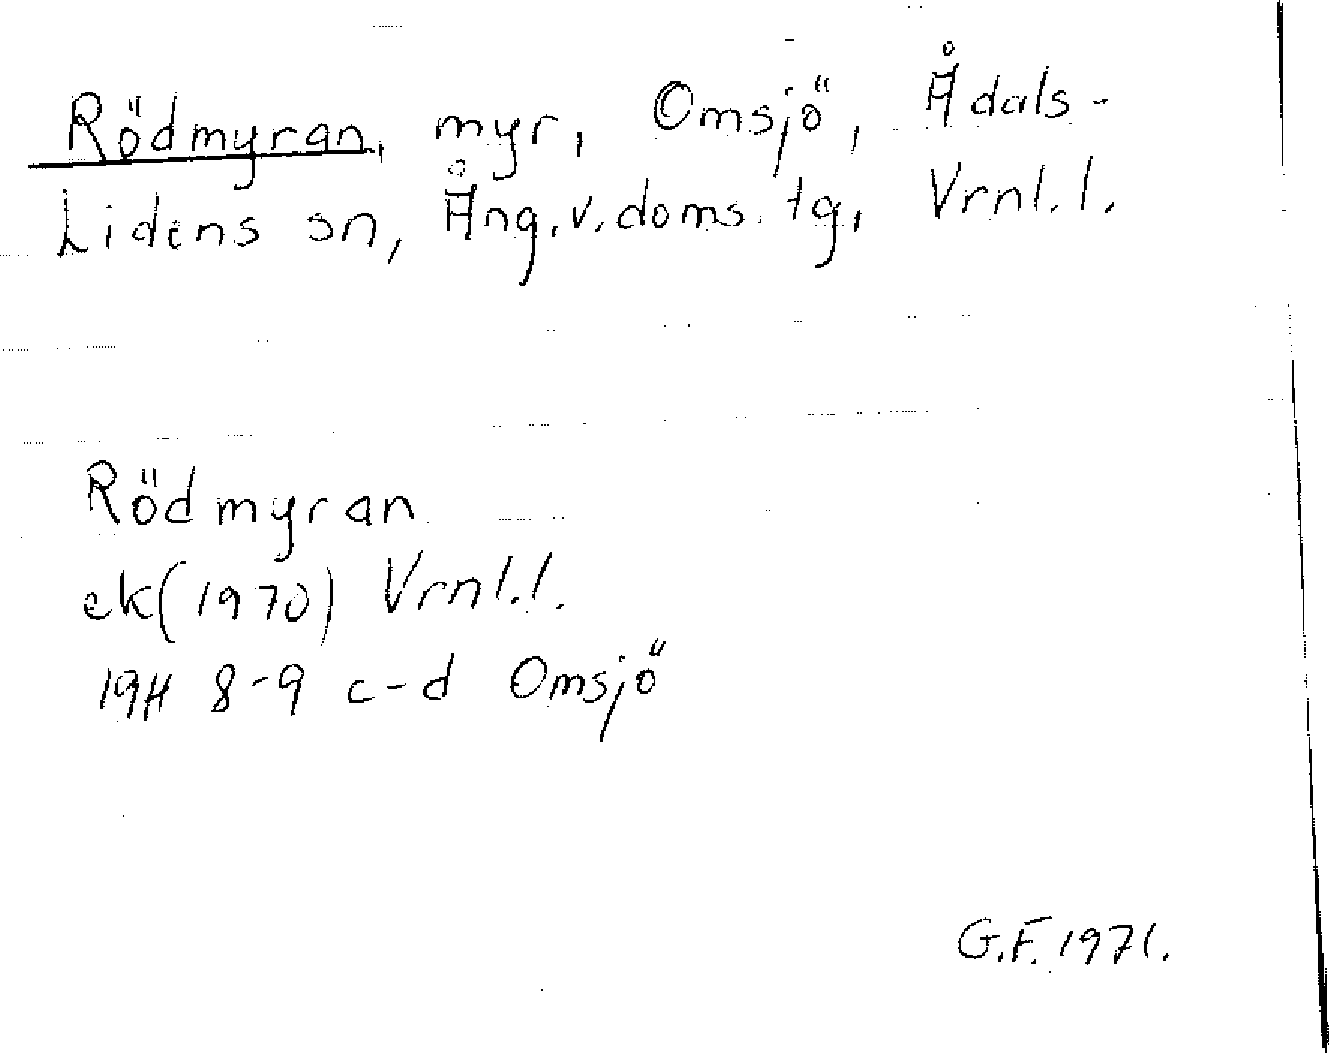 Rödmyran, myr, Omsjö, Ådals-
Lidens sn, Ång. v. doms. tg, Vrnl. l.
Rödmyran
ek (1970) Vrnl. l.
19H 8-9 c-d Omsjö
G.F. 1971.